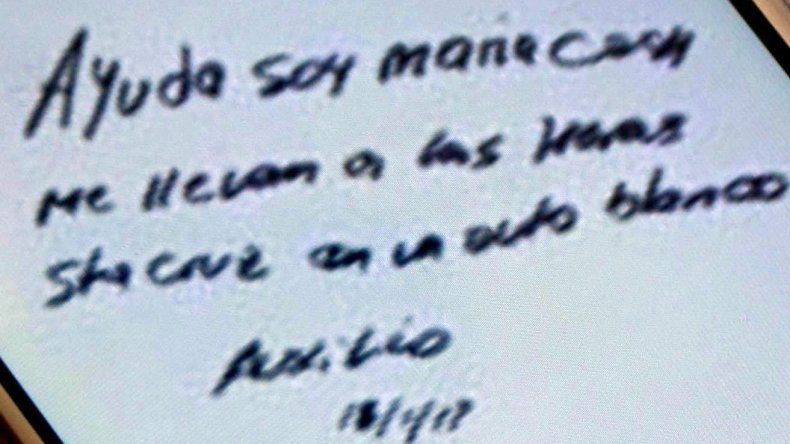 Ayuda soy maria cash
me llevan a las heras
sta cruz en un auto blanco
Auxilio
18/1/17